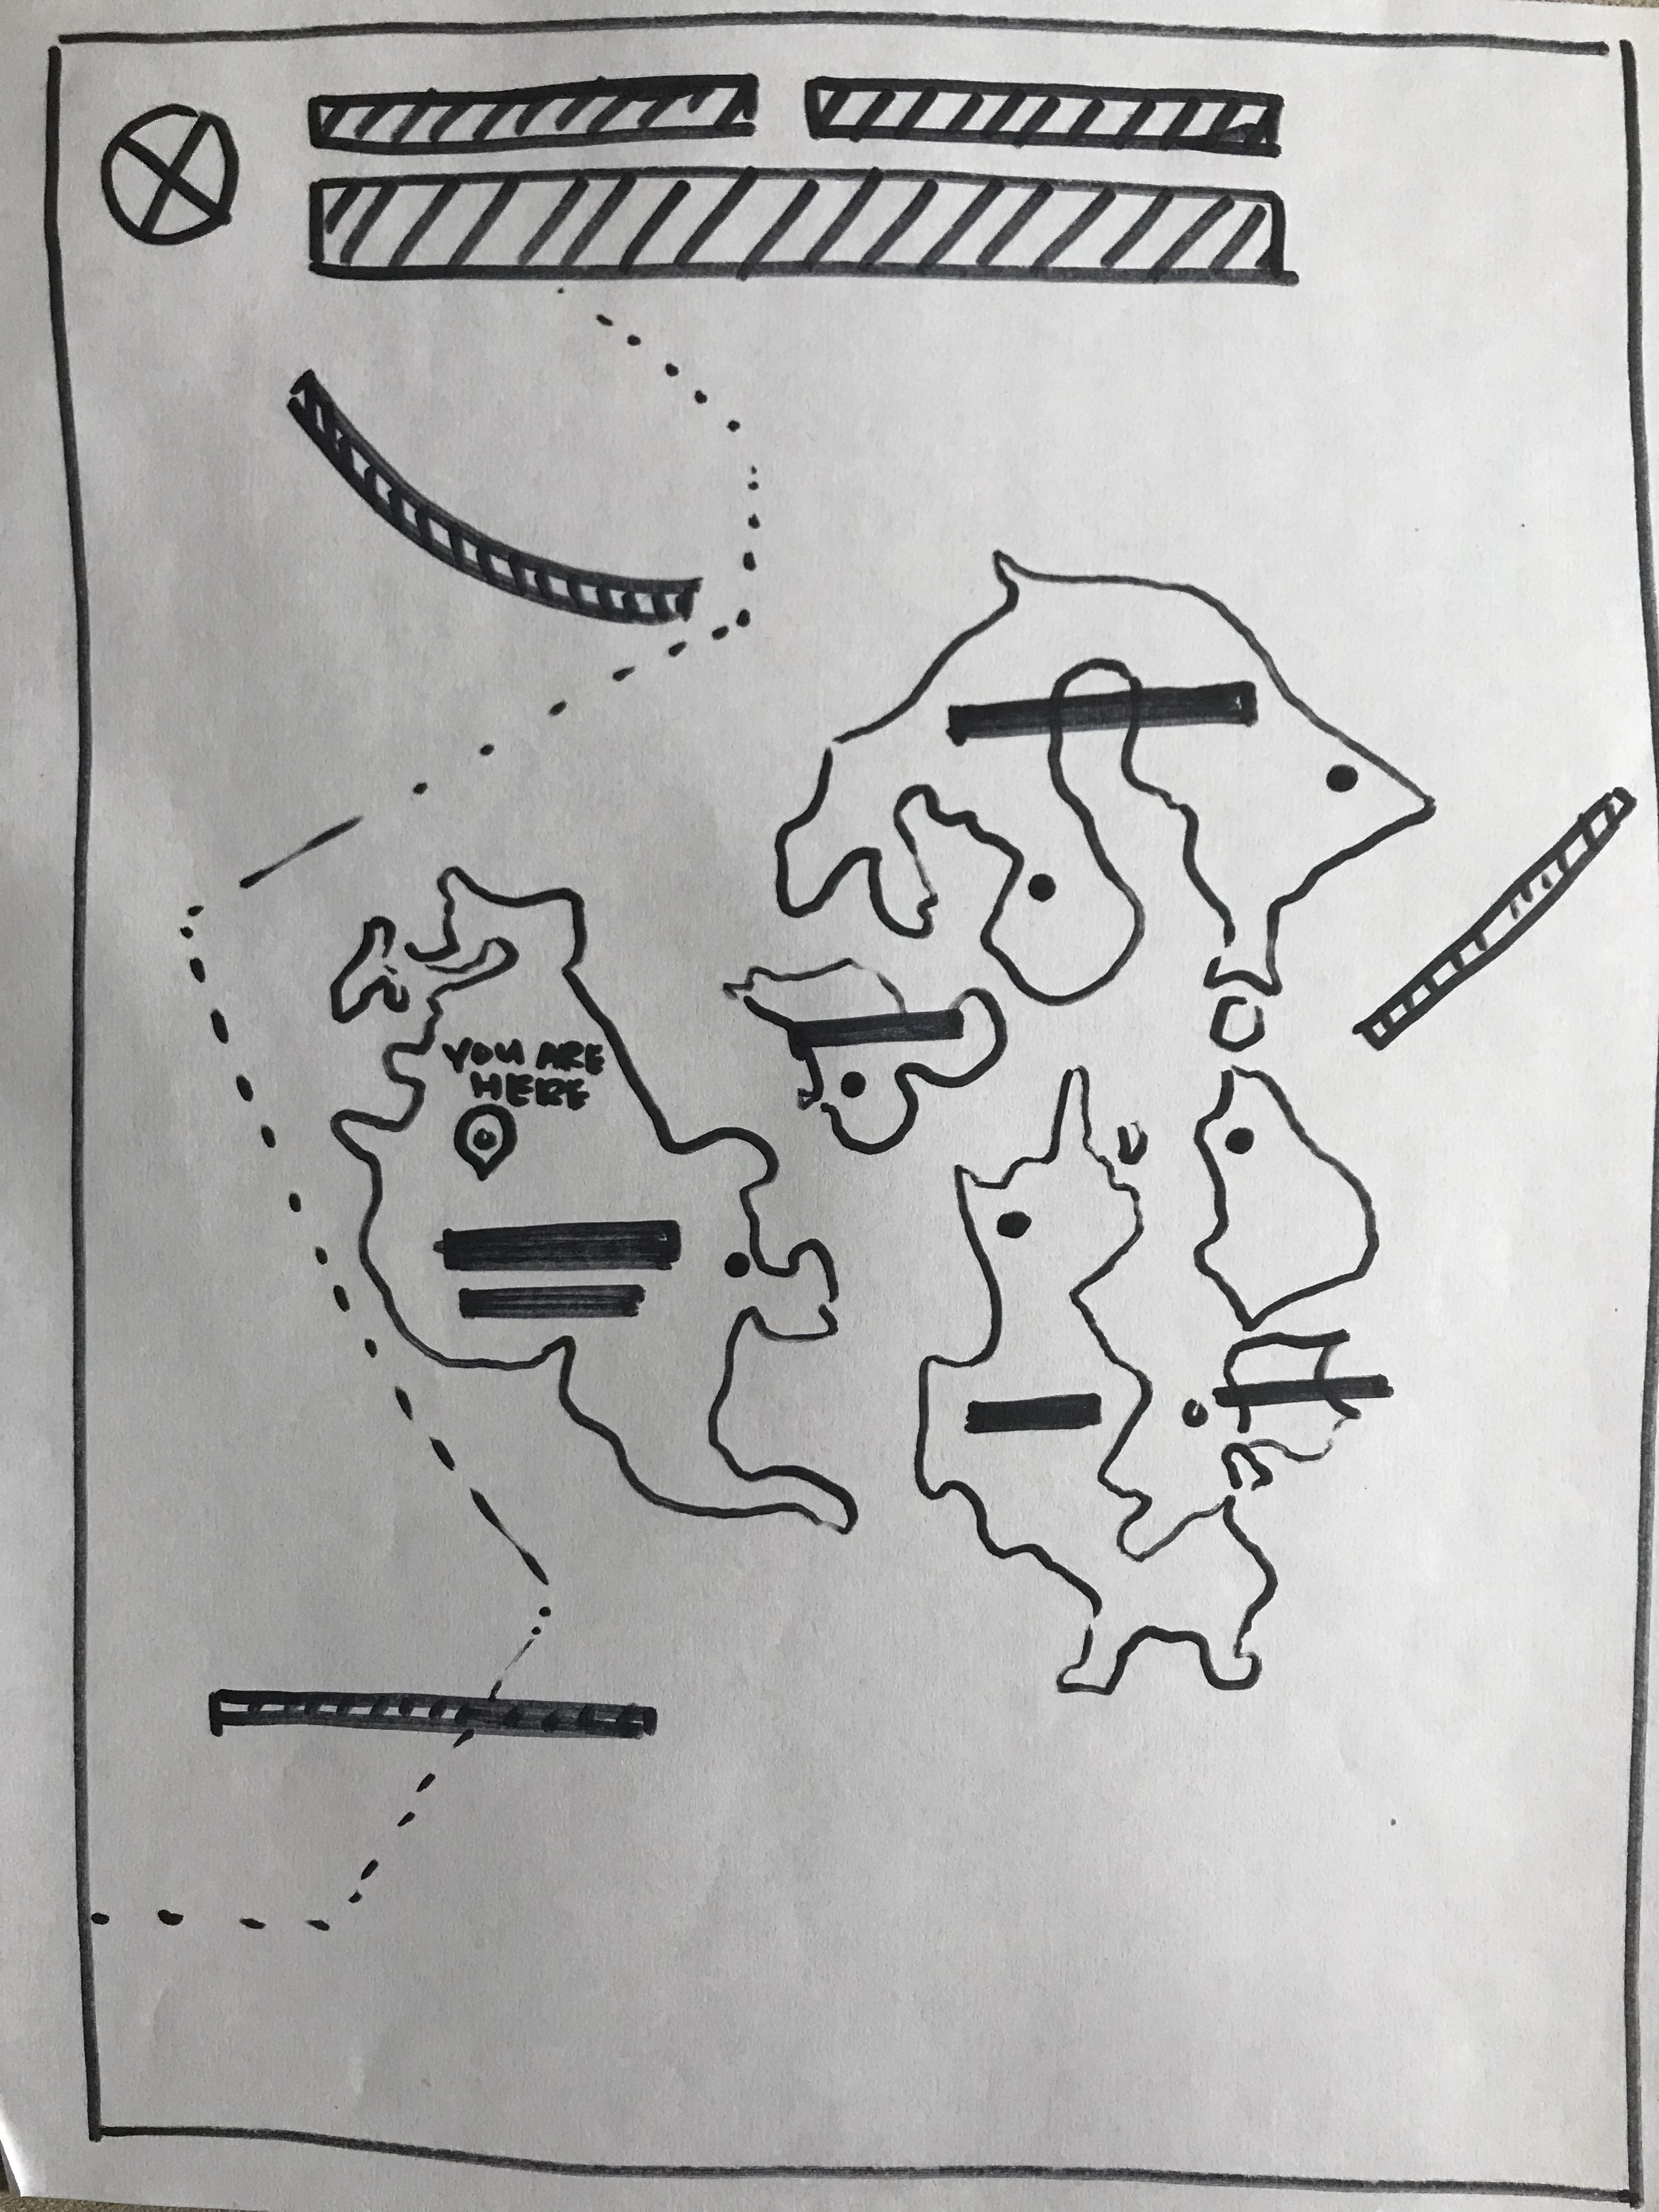 YOU ARE
HERE